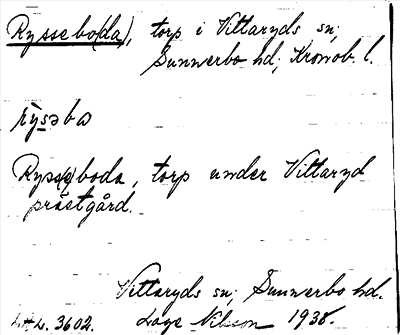 Ryssebo(da), torp i Vittaryds sn;
Sunnerbo hd; Kronob. l.
rỳsəba
Ryss(e)boda, torp under Vittaryd
prästgård.
Vittaryds sn; Sunnerbo hd.
L+L. 3602. Lage Nilsson 1938.